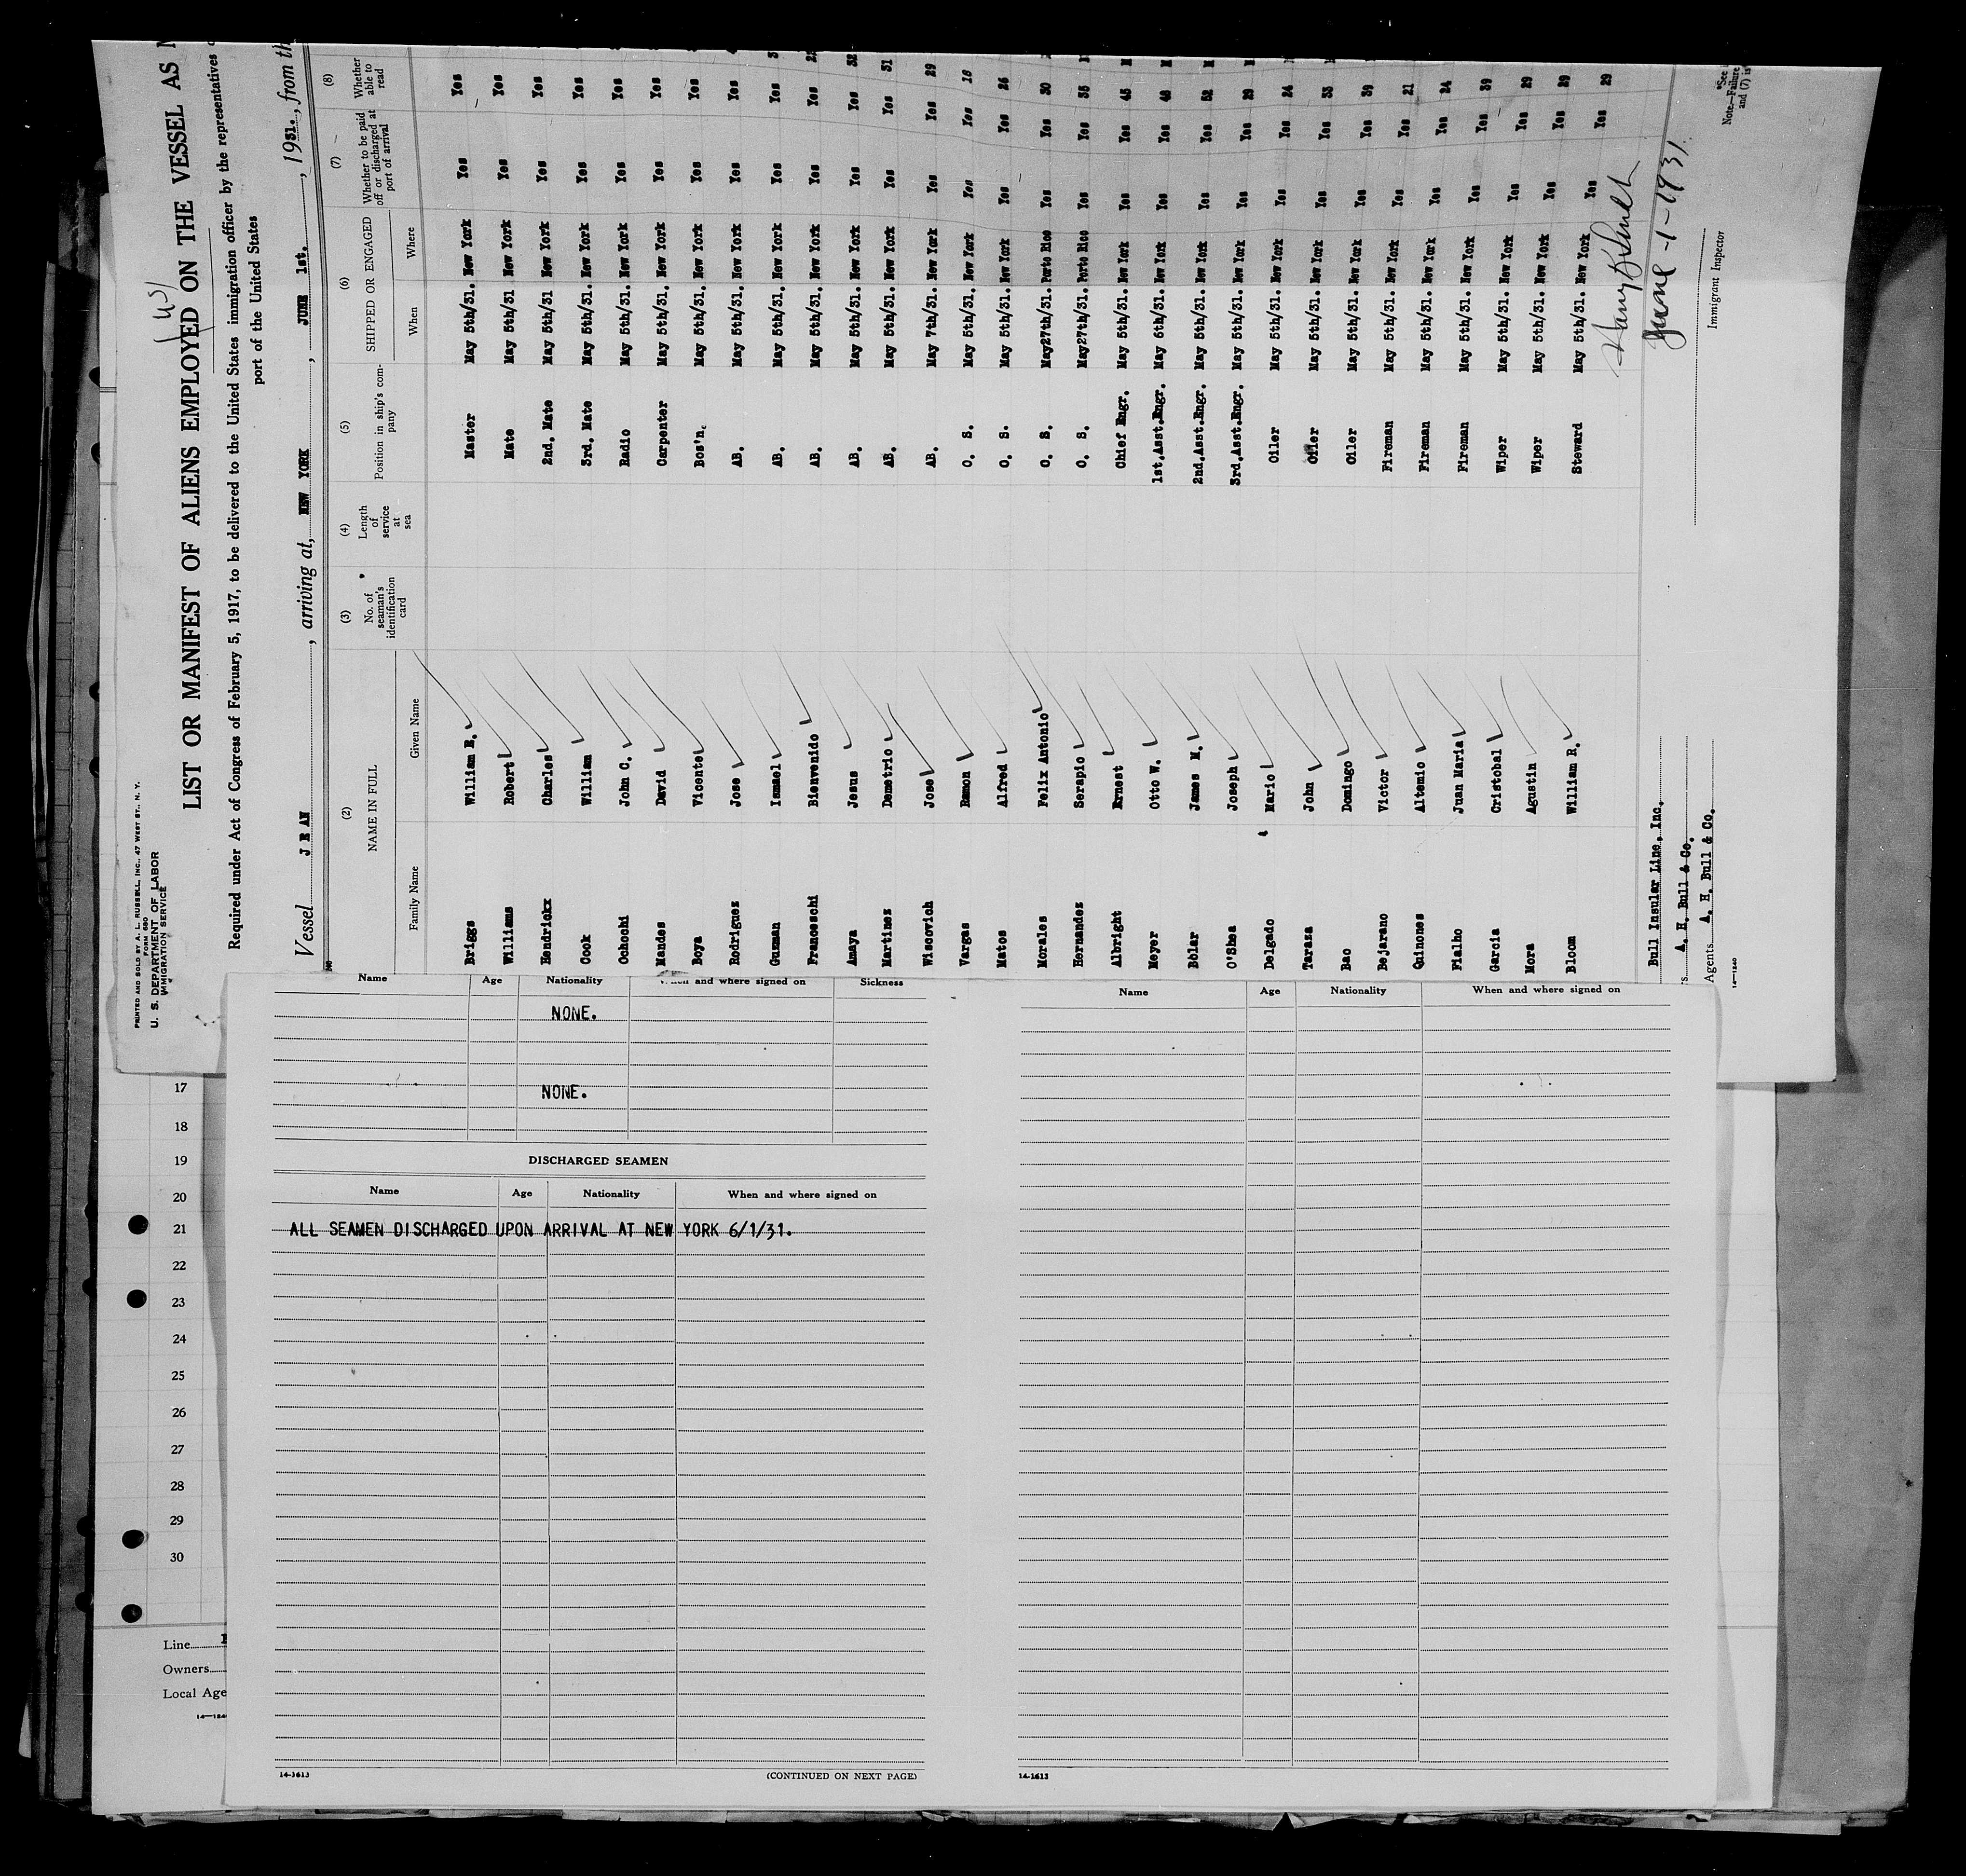 PRINTED AND SOLD BY A. L. RUSSELL, INC., 47 WEST ST., N. Y.
FORM 680
U. S. DEPARTMENT OF LABOR
IMMIGRATION SERVICE
LIST OR MANIFEST OF ALIENS EMPLOYED ON THE VESSEL AS
Required under Act of Congress of February 5, 1917, to be delivered to the United States immigration officer by the representatives
port of the United States
Vessel JEAN, arriving at, NEW YORK, JUNE 1st., 1931., from
(2) (3) (4) (5) (6) (7) (8)
NAME IN FULL No. of seaman's identification card Length of service at sea Position in ship's company SHIPPED OR ENGAGED Whether to be paid off or discharged at port of arrival Whether able to read
Family Name Given Name When Where
Briggs William E. Master May 5th/31. New York Yes Yes
Williams Robert Mate May 5th/31 New York Yes Yes
Hendrickx Charles 2nd. Mate May 5th/31 New York Yes Yes
Cook William 3rd. Mate May 5th/31. New York Yes Yes
Ochochi John C. Radio May 5th/31. New York Yes Yes
Mandes David Carpenter May 5th/31. New York Yes Yes
Boya Vicente Bos'n. May 5th/31. New York Yes Yes
Rodriguez Jose AB. May 5th/31. New York Yes Yes
Guzman Ismael AB. May 5th/31. New York Yes Yes
Franceschi Bienvenido AB. May 5th/31. New York Yes Yes
Amaya Jesus AB. May 5th/31. New York Yes Yes 32
Martinez Demetrio AB. May 5th/31. New York Yes Yes 31
Wiscovich Jose AB. May 7th/31. New York Yes Yes 29
Vargas Ramon O. S. May 5th/31. New York Yes Yes 18
Matos Alfred O. S. May 5th/31. New York Yes Yes 26
Morales Felix Antonio O. S. May27th/31. Porto Rico Yes Yes 30
Hernandez Serapio O. S. May27th/31. Porto Rico Yes Yes 35
Albright Ernest Chief Engr. May 5th/31. New York Yes Yes 45
Meyer Otto W. 1st.Asst.Engr. May 6th/31. New York Yes Yes 48
Bolar James M. 2nd.Asst.Engr. May 5th/31. New York Yes Yes 52
O'Shea Joseph 3rd.Asst.Engr. May 5th/31. New York Yes Yes 29
Delgado Mario Oiler May 5th/31. New York Yes Yes 24
Taraza John Oiler May 5th/31. New York Yes Yes 33
Bao Domingo Oiler May 5th/31. New York Yes Yes 39
Bejarano Victor Fireman May 5th/31. New York Yes Yes 21
Quinones Altemio Fireman May 5th/31. New York Yes Yes 24
Fialho Juan Maria Fireman May 5th/31. New York Yes Yes 39
Garcia Cristobal Wiper May 5th/31. New York Yes Yes 29
Mora Agustin Wiper May 5th/31. New York Yes Yes 29
Bloom William R. Steward May 5th/31. New York Yes Yes 29
June-1-1931
Immigrant Inspector
Bull Insular Line, Inc.
A. H. Bull & Co.
Agents A. H. Bull & Co.
14—1240
Note.—Failure
and (7) is
Name Age Nationality When and where signed on Sickness
NONE.
NONE.
DISCHARGED SEAMEN
Name Age Nationality When and where signed on
ALL SEAMEN DISCHARGED UPON ARRIVAL AT NEW YORK 6/1/31.
14-1613 (CONTINUED ON NEXT PAGE)
Name Age Nationality When and where signed on
14-1613
17
18
19
20
21
22
23
24
25
26
27
28
29
30
Line
Owners
Local Age